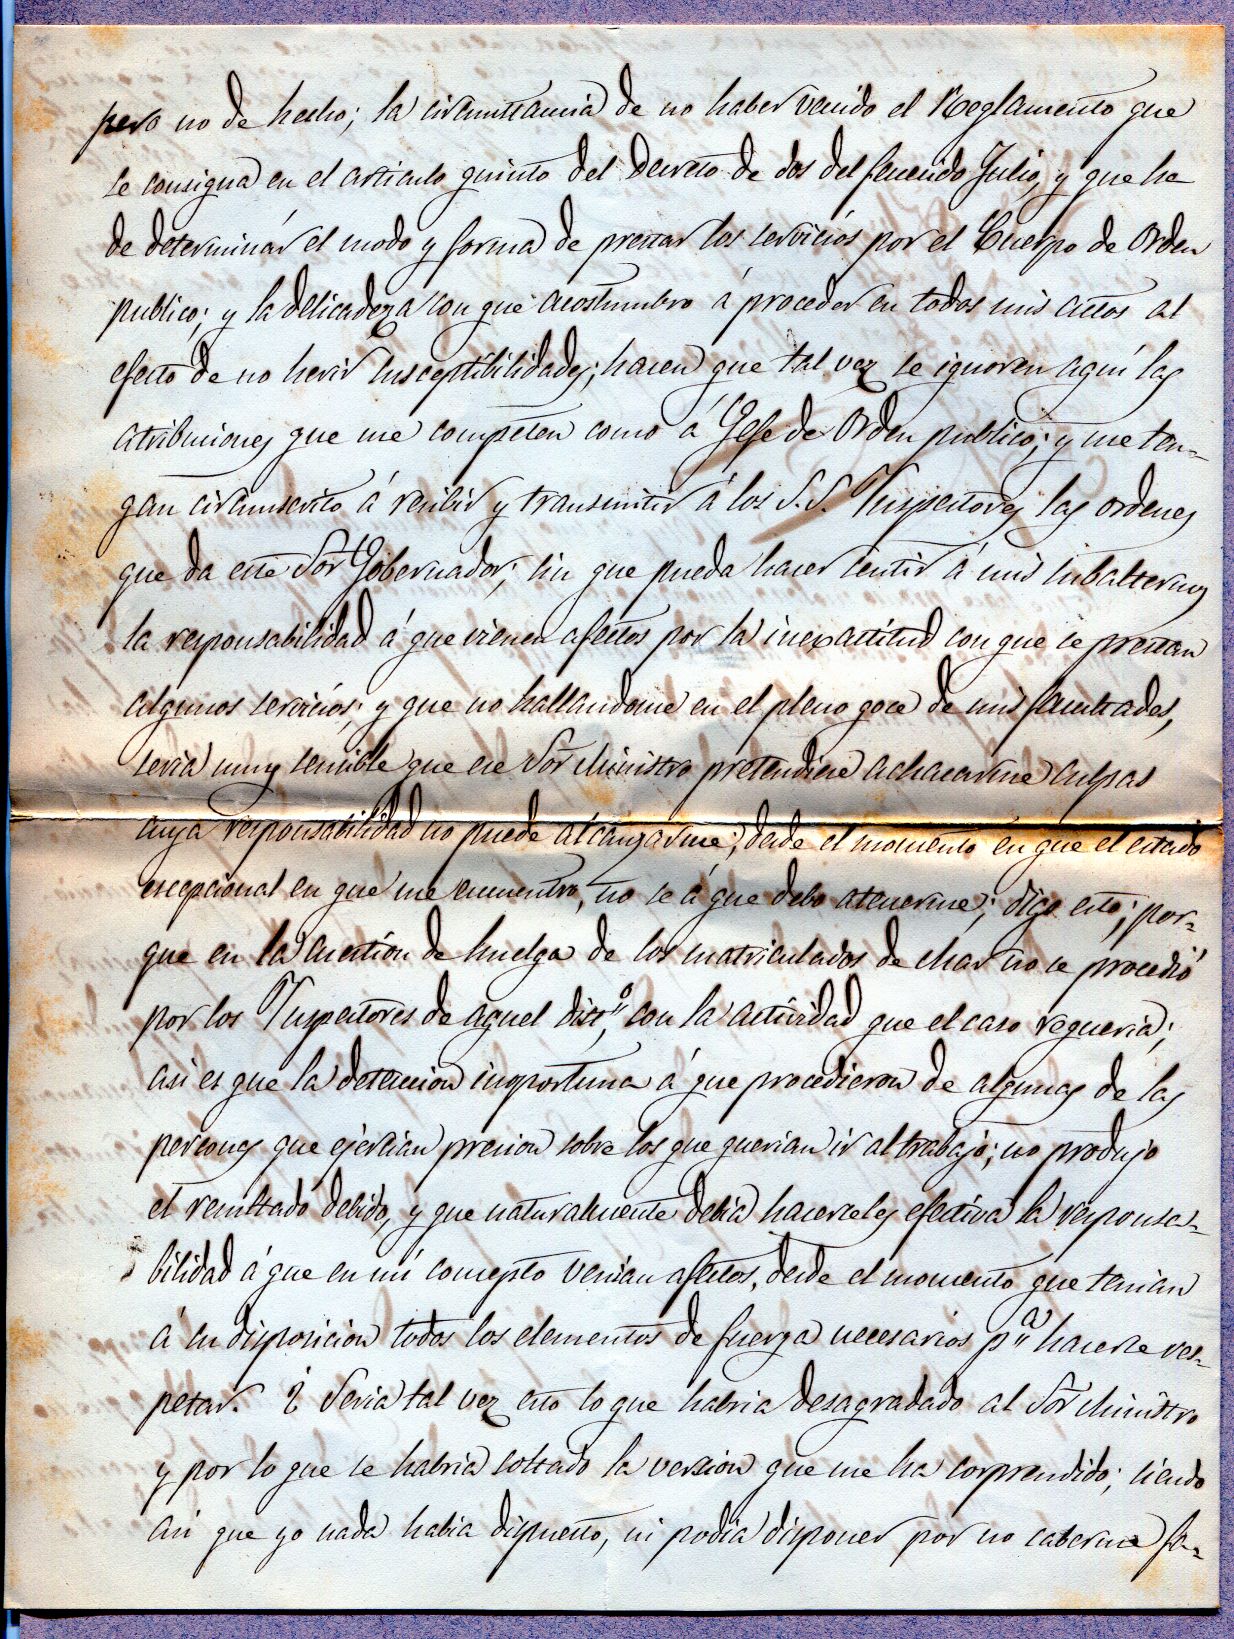 pero no de hecho; la circunstancia de no haber venido el Reglamento que
se consigna en el articulo quinto del Decreto de dos del fenecido Julio, y que ha
de determinár el modo y forma de prestar los servicios por el Cuerpo de Orden
publico; y la delicadeza con que acostumbro á proceder en todos mis actos al
efecto de no herir susceptibilidades; hacen que tal vez se ignoren aquí las
atribuciones que me competen como á Gefe de Orden publico; y me ten-
gan circunscrito á recibir y transmitir á los S.S. Inspectores las ordenes
que da este Sor Gobernador; sin que pueda hacer sentir á mis subalternos
la responsabilidad á que vienen afectos por la inexactitud con que se prestan
algunos servicios; y que no hallandome en el pleno goce de mis facultades,
seria muy sensible que ese Sor Ministro pretendiese achacarme culpas
cuya responsabilidad no puede alcanzarme; desde el momento en que el estado
escepcional en que me encuentro, no se á que debo atenerme; digo esto; por-
que en la cuestion de huelga de los matriculados de Mar no se procedió
por los Inspectores de aquel disto, con la actividad que el caso requeria;
asi es que la detencion inoportuna á que procedieron de algunas de las
personas que ejercian presion sobre los que querian ir al trabajo; no produjo
el resultado debido, y que naturalmente debia hacerseles efectiva la responsa-
bilidad á que en mi concepto venian afectos, desde el momento que tenian
á su disposicion todos los elementos de fuerza necesarios pa hacerse res-
petar. ¿ Seria tal vez esto lo que habria desagradado al Sor Ministro
y por lo que se habria soltado la version que me ha sorprendido; siendo
asi que yo nada habia dispuesto, ni podia disponer por no caberme fa-